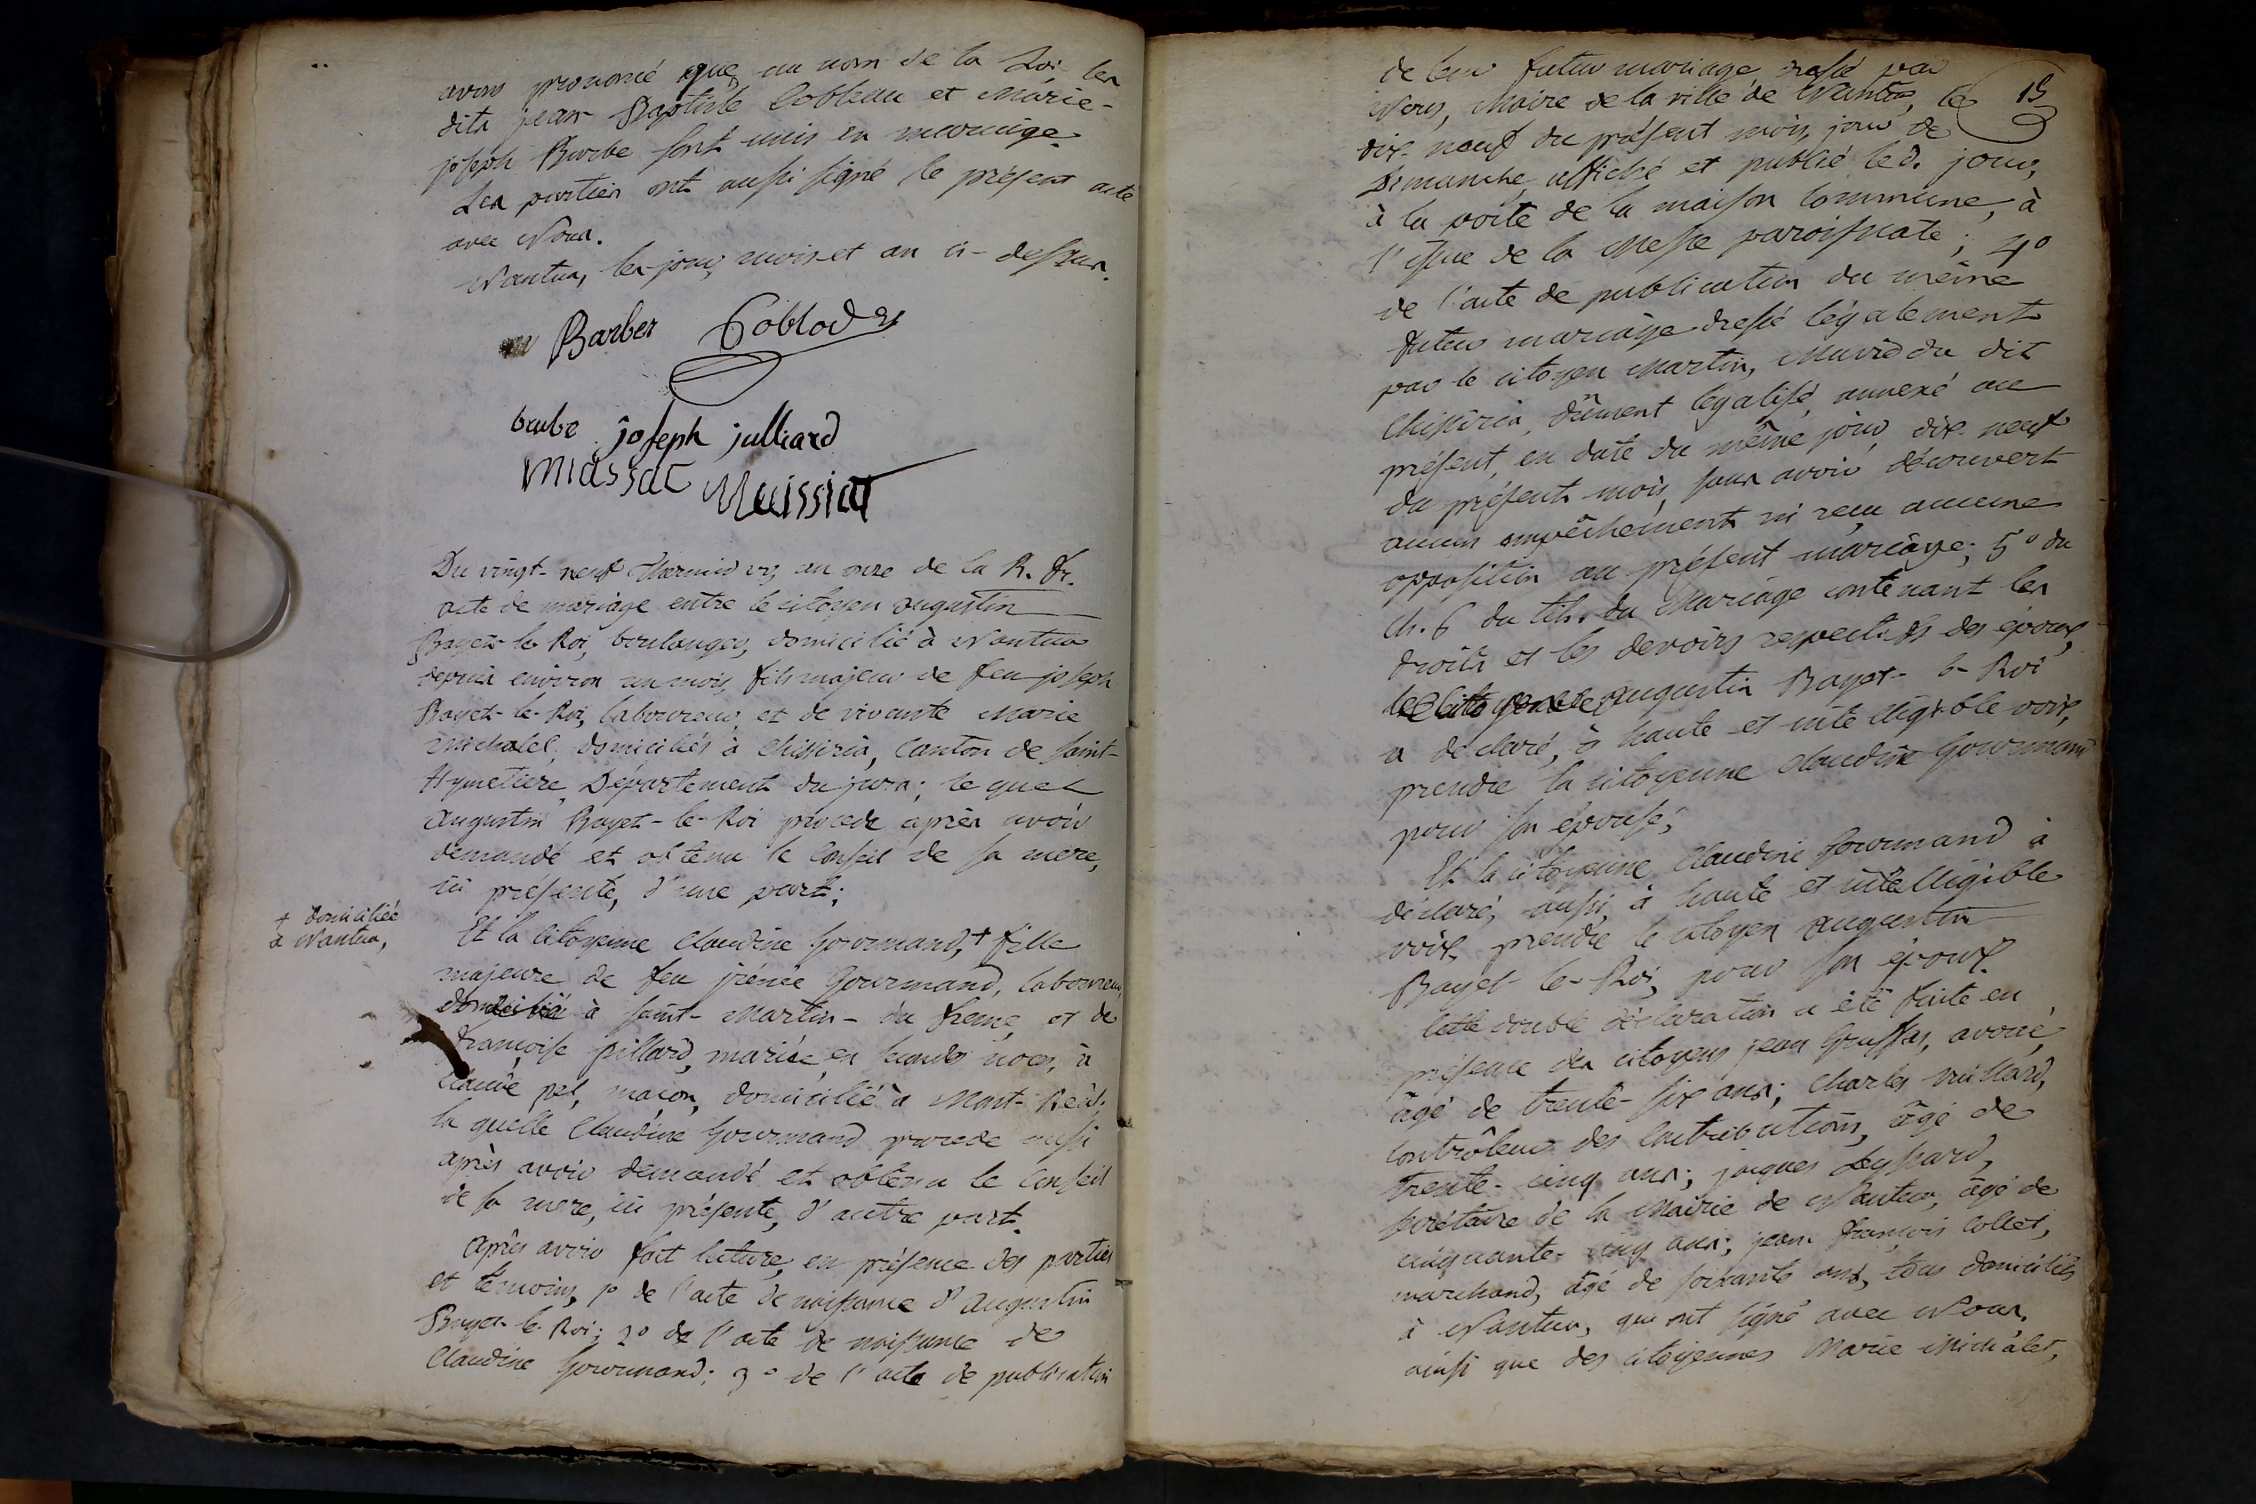 avons prononcé que, au nom de la Loi, les
dits jean Baptiste Cobleau et Marie-
joseph Burbe sont unis en mariage.
Les parties ont aussi signé le présent acte
avec Nous.
Nantua, les jour, mois et an ci-dessus.
Barber
barbe joseph julliard
miassat Muissiat
Du vingt-neuf thermidor, an onze de la R. fr.
acte de mariage entre le citoyen augustin
Bayet-le-Roi, boulanger, domicilié à Nantua
depuis environ un mois, fils majeur de feu joseph
Bayet-le-Roi, laboureur, et de vivante Marie
Michalet, domiciliés à Chissiria, Canton de saint-
Hymetiere, Département du jura; le quel
augustin Bayet-le-Roi procede après avoir
demandé et obtenu le Conseil de sa mere,
ici présente, d'une part;
+ domiciliée
à Nantua,
Et la Citoyenne Claudine Gourmand, + fille
majeure de feu jrénée Gourmand, laboureur,
domicilié à saint-Martin-du frêne, et de
françoise pillard, mariée en secondes noces, à
Claude pel, maçon, domicilié à Mont-Réal,
la quelle Claudine Gourmand procede aussi
après avoir demandé et obtenu le Conseil
de sa mere, ici présente, d'autre part.
Après avoir fait lecture, en présence des parties
et témoins, 1º de l'acte de naissance d'augustin
Bayet-le-Roi; 2º de l'acte de naissance de
Claudine Gourmand; 3º de l'acte de publication
15
de leur futur mariage, dressé par
Nous, Maire de la ville de Nantua, le
dix-neuf du présent mois, jour de
Dimanche, affiché et publié led. jour,
à la porte de la maison Commune, à
l'issue de la Messe paroissiale; 4º
de l'acte de publication du même
futur mariage dressé légalement
par le citoyen Martin, Maire du dit
Chissiria, dûment legalisé, annexé au
présent, en date du même jour, dix-neuf
du présent mois, sans avoir découvert
aucun empêchement ni reçu aucune
opposition au présent mariage; 5º du
Ch. 6 du tit. du Mariage contenant les
droits et les devoirs respectifs des époux,
augustin Bayet-le-Roi
a déclaré, à haute et intelligible voix,
prendre la citoyenne Claudine Gourmand
pour son épouse;
Et la citoyenne Claudine Gourmand à
déclaré, aussi, à haute et intelligible
voix, prendre le citoyen augustin
Bayet-le-Roi, pour son époux.
Cette double déclaration a été faite en
présence des citoyens jean avoué,
âgé de trente-six ans; Charles
Contrôleur des Contributions, âgé de
trente-cinq ans; jacques
secrétaire de la Mairie de Nantua, âgé de
cinquante-cinq ans; jean françois Collet,
marchand, âgé de soixante ans, tous domiciliés
à Nantua, qui ont signé avec Nous,
ainsi que des citoyennes Marie Michalet,